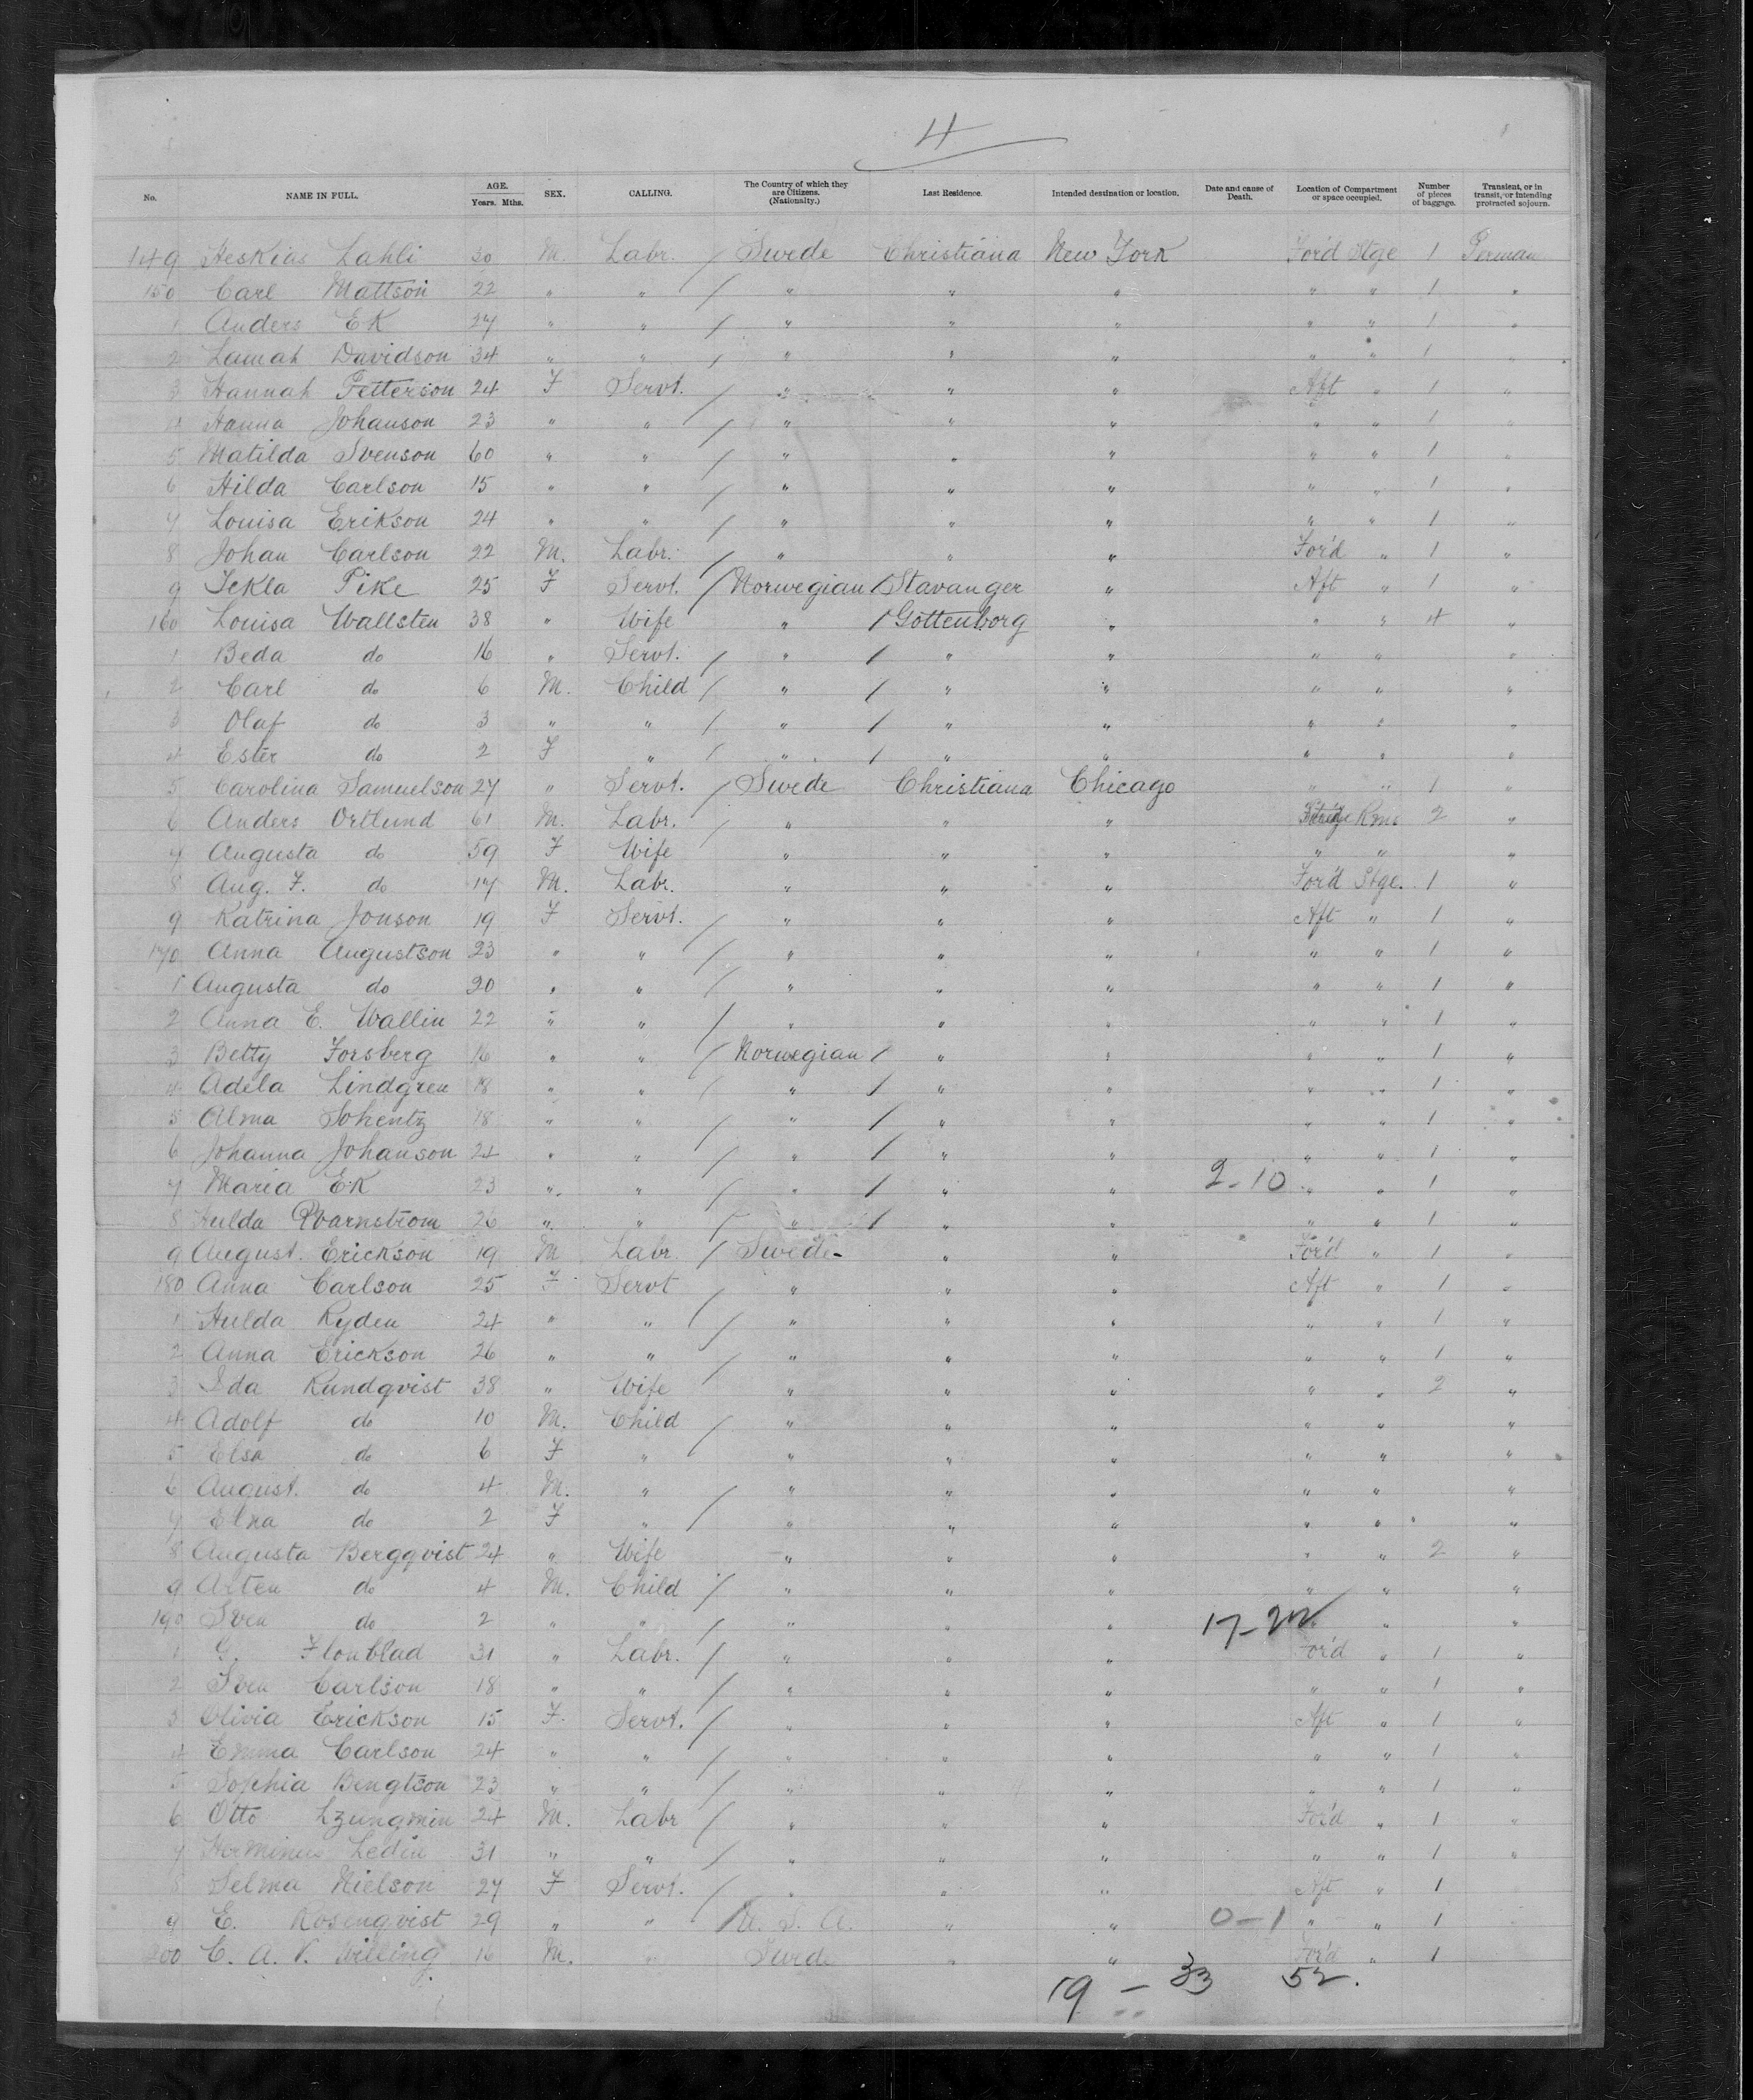 4
No. NAME IN FULL. AGE. Years. Mths. SEX. CALLING. The Country of which they are Citizens. (Nationality.) Last Residence. Intended destination or location. Date and cause of Death. Location of Compartment or space occupied. Number of pieces of baggage. Transient, or in transit, or intending protracted sojourn.
149 Heskias Lahli 30 M. Labr. / Swede Christiana New York For'd Stge 1 Perman
150 Carl Mattson 22 " " / " " " " " 1 "
1 Anders Ek 27 " " / " " " " " 1 "
2 Lamah Davidson 34 " " / " " " " " 1 "
3 Hannah Petterson 24 F Servt. / " " " Aft " 1 "
4 Hanna Johanson 23 " " / " " " " " 1 "
5 Matilda Svenson 60 " " / " " " " " 1 "
6 Hilda Carlson 15 " " / " " " " " 1 "
7 Louisa Erikson 24 " " / " " " " " 1 "
8 Johan Carlson 22 M. Labr. / " " " For'd " 1 "
9 Tekla Pike 25 F Servt. / Norwegian / Stavanger " Aft " 1 "
160 Louisa Wallsten 38 " Wife " / Gottenborg " " " 4 "
1 Beda do 16 " Servt. / " / " " " " "
2 Carl do 6 M. Child / " / " " " " "
3 Olaf do 3 " " / " / " " " " "
4 Ester do 2 F " / " / " " " " "
5 Carolina Samuelson 27 " Servt. / Swede Christiana Chicago " " 1 "
6 Anders Ortlund 61 M. Labr. / " " " Rms 2 "
7 Augusta do 59 F Wife " " " " " "
8 Aug. F. do 17 M. Labr. " " " For'd Stge. 1 "
9 Katrina Jonson 19 F Servt. / " " " Aft " 1 "
170 Anna Augustson 23 " " / " " " " " 1 "
1 Augusta do 20 " " / " " " " " 1 "
2 Anna E. Wallin 22 " " / " " " " " 1 "
3 Betty Forsberg 16 " " / Norwegian / " " " " 1 "
4 Adela Lindgren 18 " " / " / " " " " 1 "
5 Alma Sohentz 18 " " / " / " " " " 1 "
6 Johanna Johanson 24 " " / " / " " " " 1 "
7 Maria Ek 23 " " / " / " " 2-10 " " 1 "
8 Hulda Qvarnstrom 26 " " / " / " " " " 1 "
9 August. Erickson 19 M Labr / Swede " " For'd " 1 "
180 Anna Carlson 25 F Servt / " " " Aft " 1 "
1 Hulda Ryden 24 " " / " " " " " 1 "
2 Anna Erickson 26 " " / " " " " " 1 "
3 Ida Rundqvist 38 " Wife " " " " " 2 "
4 Adolf do 10 M. Child / " " " " " "
5 Elsa do 6 F " " " " " " "
6 August. do 4 M. " / " " " " " "
7 Elna do 2 F " / " " " " " "
8 Augusta Bergqvist 24 " Wife " " " " " 2 "
9 Arten do 4 M. Child / " " " " " "
190 Sven do 2 " " / " " " 17-22 " "
1 G. Flonblad 31 " Labr. / " " " For'd " 1 "
2 Sven Carlson 18 " " / " " " " " 1 "
3 Olivia Erickson 15 F. Servt. / " " " Aft " 1 "
4 Emma Carlson 24 " " / " " " " " 1 "
5 Sophia Bengtson 23 " " / " " " " " 1 "
6 Otto Lzungmin 24 M. Labr / " " " For'd " 1 "
7 Herminus Ledin 31 " " / " " " " " 1 "
8 Selma Nielson 27 F Servt. / " " " Aft " 1
9 E. Rosenqvist 29 " " / U. S. A. " " 0-1 " " 1
200 C. A. V. Willing 16 M. " Swede " " For'd " 1
19 - 33 52.